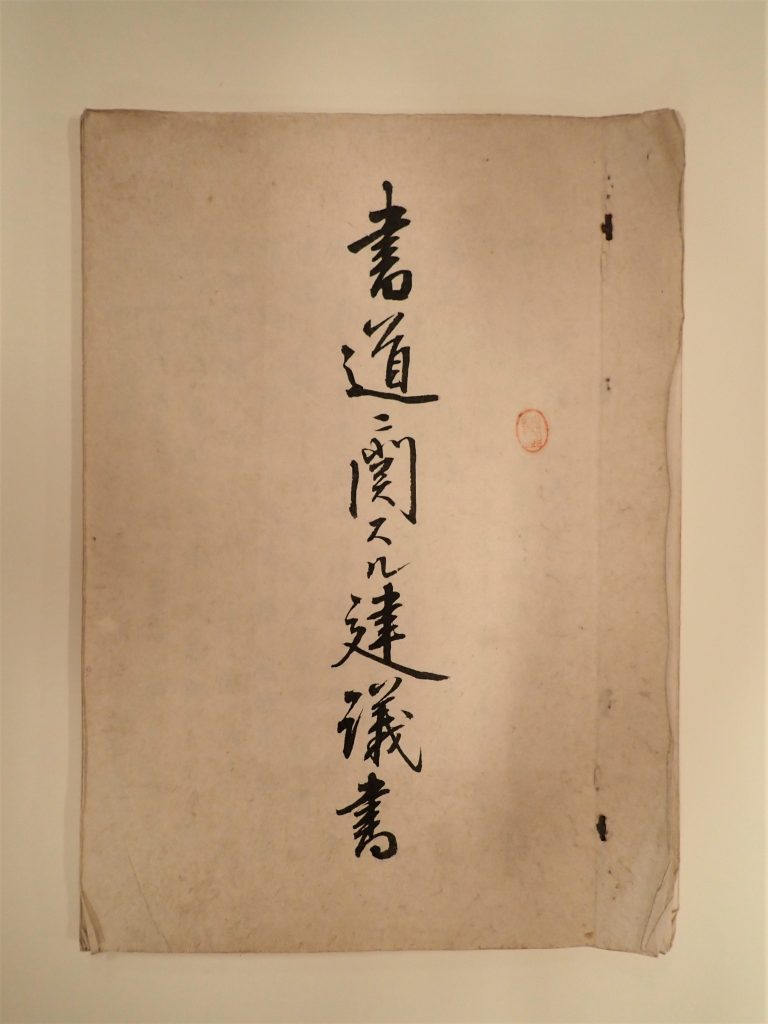 書道ニ関スル建議書